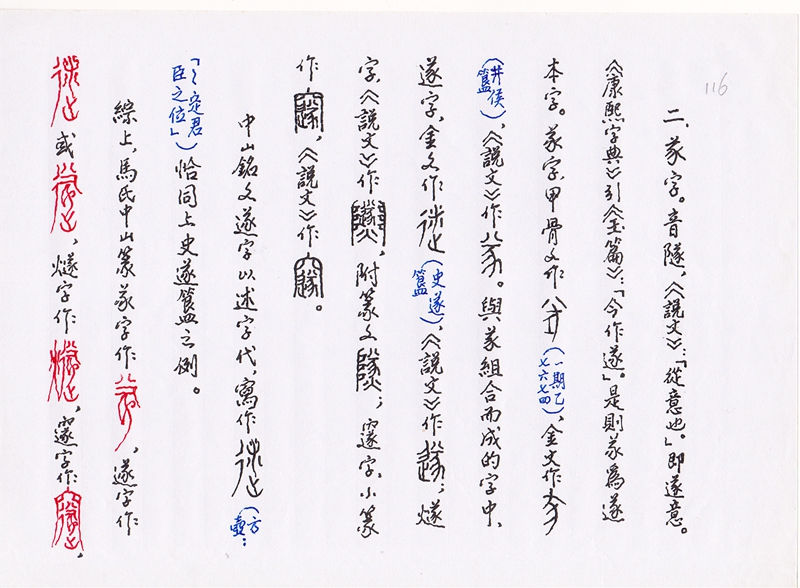 116
二、㒸字。音隧，《說文》：「從意也」。即遂意。
《康熙字典》引《玉篇》：「今作遂。」是則㒸爲遂
本字。㒸字，甲骨文作（一期乙七六七四），金文作
（井侯簋），《說文》作。與㒸組合而成的字中，
遂字，金文作（史遂簋），《說文》作；燧
字，《說文》作，附篆文；䆳字，小篆
作，《說文》作。
中山銘文遂字以述字代，寫作（方壺：
「以定君臣之位」）恰同上史遂簋之例。
綜上，馬氏中山篆㒸字作，遂字作
或，燧字作，䆳字作，